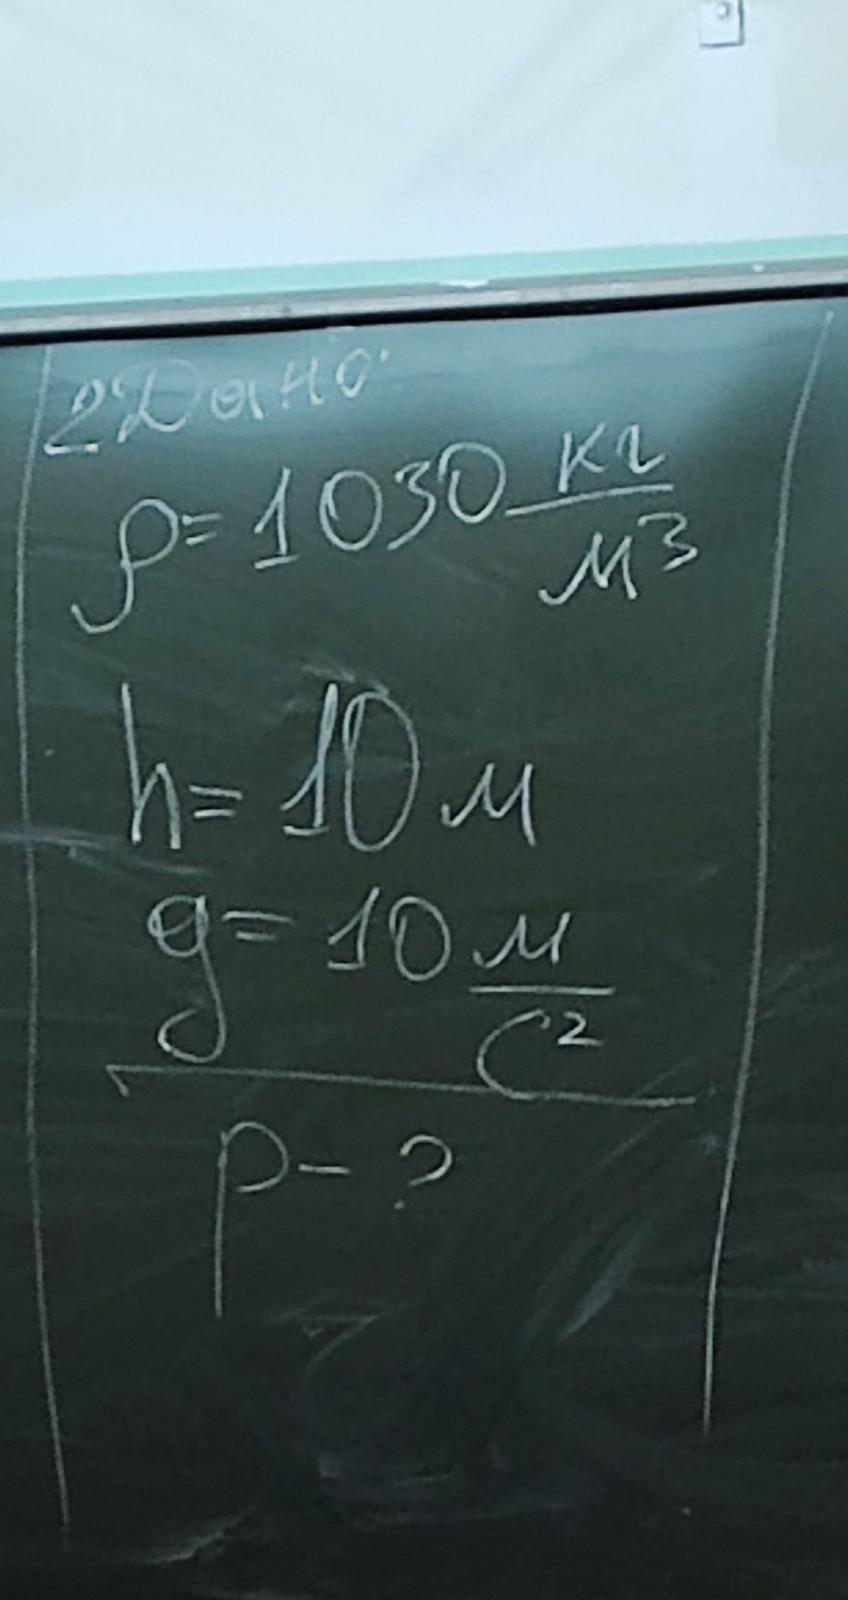 2 Дано:
ρ = 1030 кг/м³
h = 10 м
g = 10 м/с²
p - ?